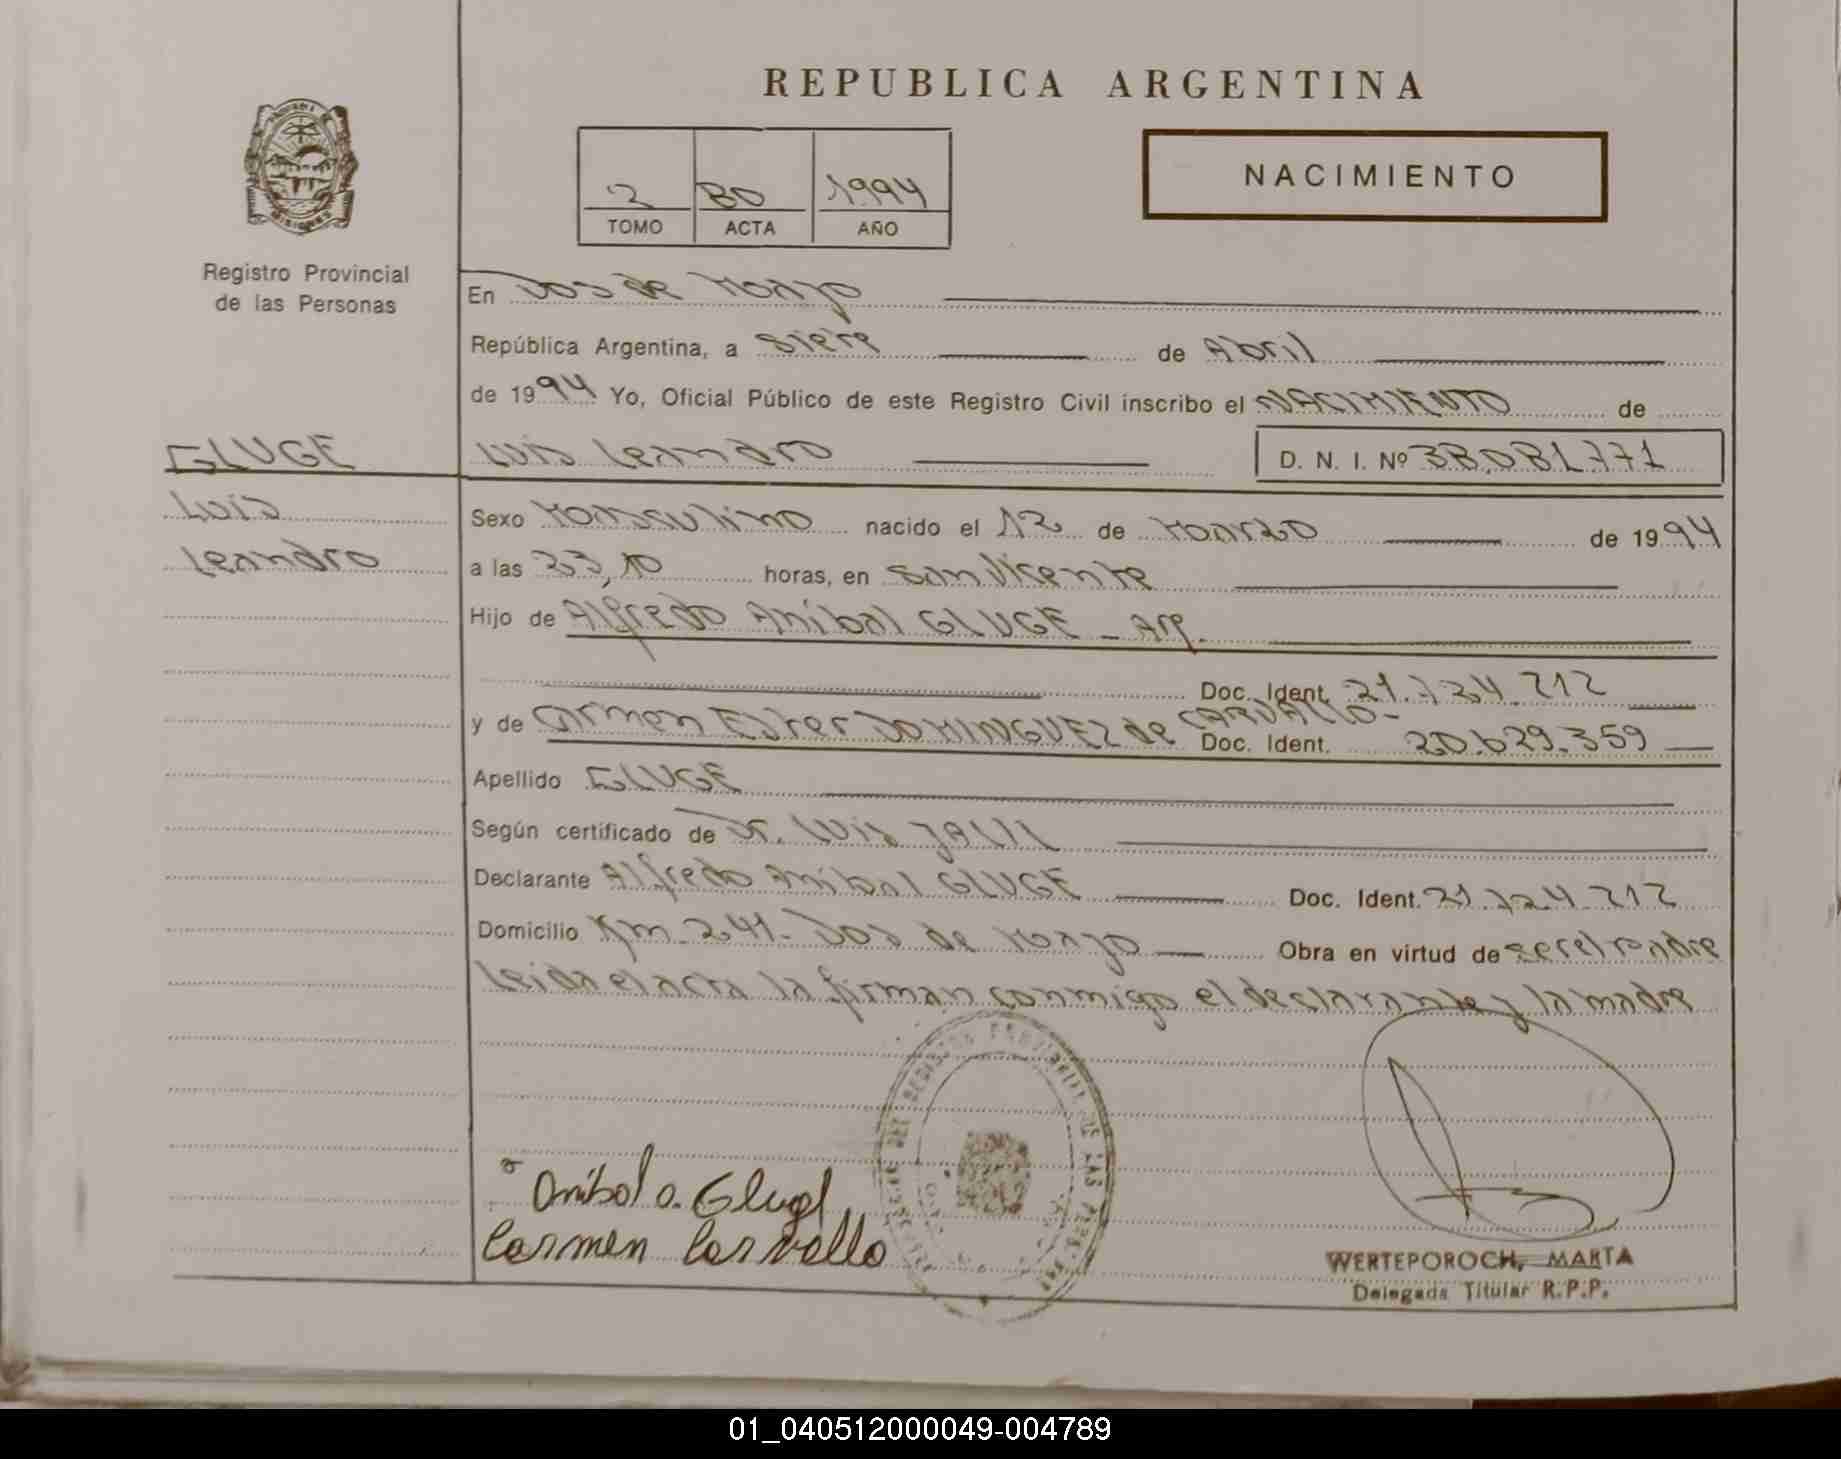 REPUBLICA ARGENTINA
NACIMIENTO
2 80 1994
TOMO ACTA AÑO
Registro Provincial
de las Personas
En Dos de Mayo
República Argentina, a siete de Abril
de 1994 Yo, Oficial Público de este Registro Civil inscribo el NACIMIENTO de
GLUGE
Luis Leandro
D. N. I. Nº 38.081.771
Luis
Leandro
Sexo Masculino nacido el 12 de Marzo de 1994
a las 23,10 horas, en San Vicente
Hijo de Alfredo Anibal GLUGE - Arg.
Doc. Ident. 21.724.212
y de Carmen Ester DOMINGUEZ de CARVALLO-
Doc. Ident. 20.629.359
Apellido GLUGE
Según certificado de Dr. Luis JALIL
Declarante Alfredo Anibal GLUGE Doc. Ident. 21.724.212
Domicilio Km. 241. Dos de Mayo Obra en virtud de ser el padre
Leida el acta la firman conmigo el declarante y la madre
Anibal a. Gluge
Carmen Carvallo
WERTEPOROCH, MARTA
Delegada Titular R.P.P.
01_040512000049-004789